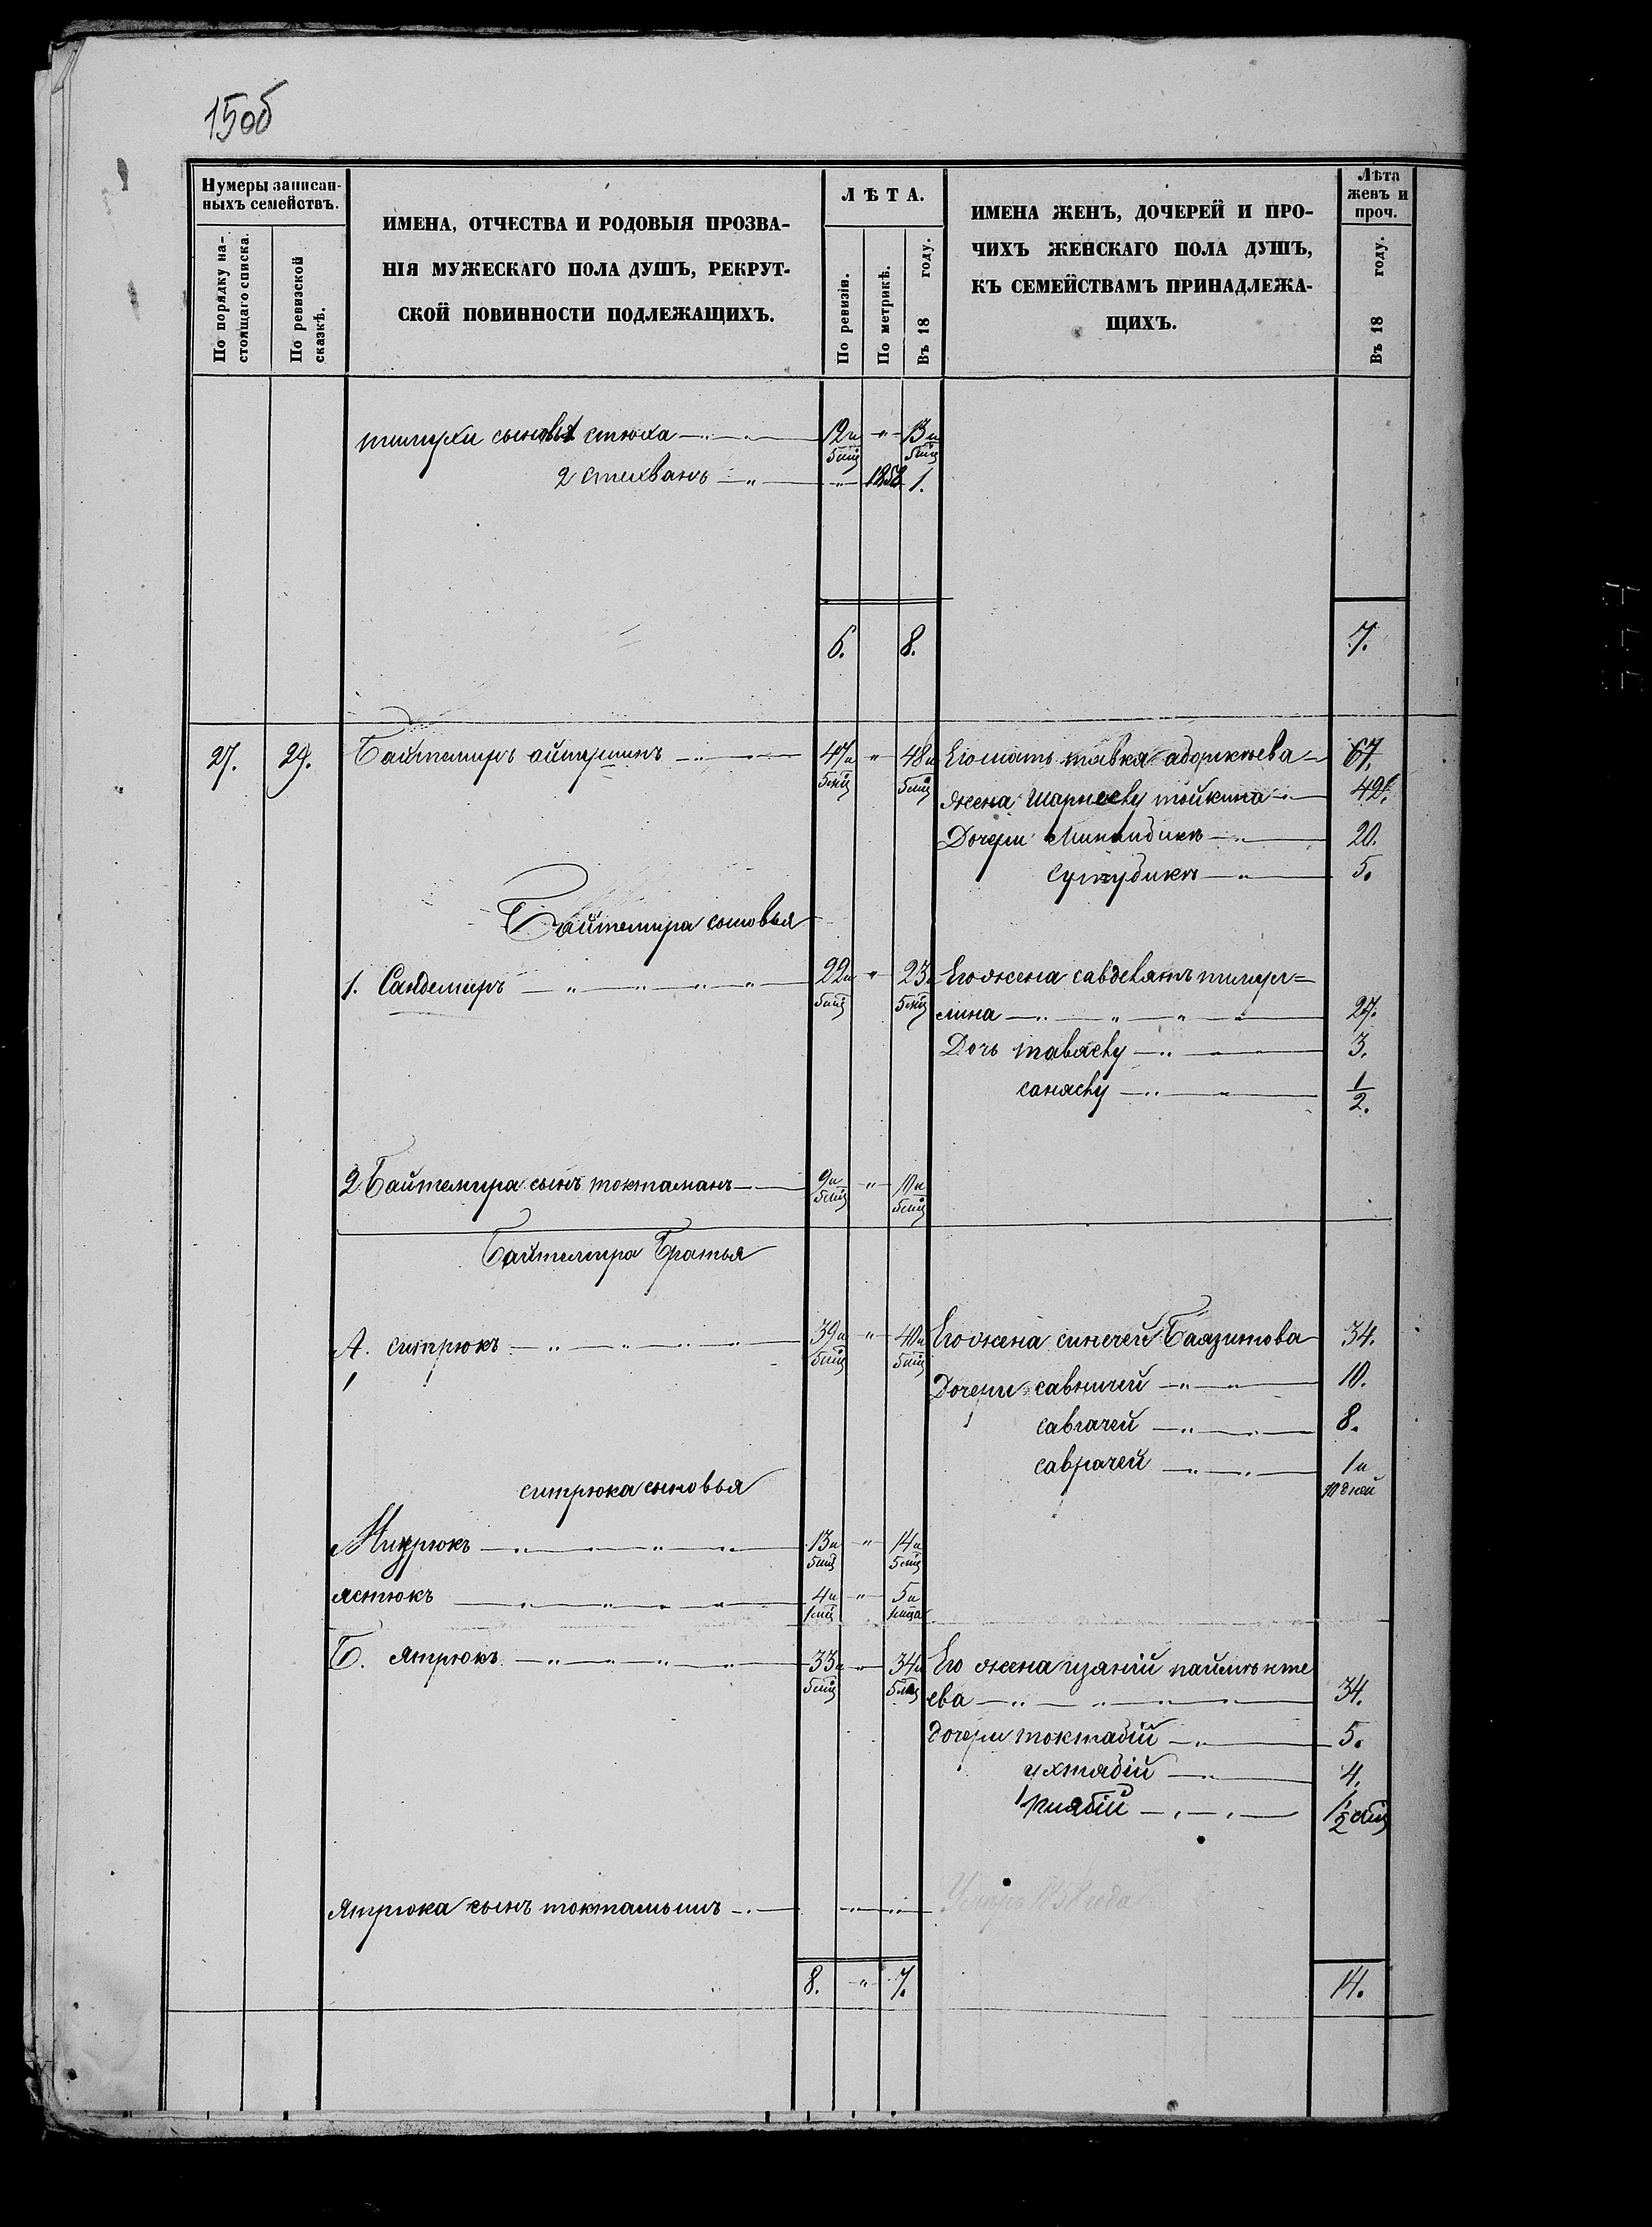 150б
Нумеры записан-
ныхъ семействъ.
По порядку на-
стоящаго списка.
По ревизской
сказкѣ.
ИМЕНА, ОТЧЕСТВА И РОДОВЫЯ ПРОЗВА-
НІЯ МУЖЕСКАГО ПОЛА ДУШЪ, РЕКРУТ-
СКОЙ ПОВИННОСТИ ПОДЛЕЖАЩИХЪ.
ЛѢТА.
По ревизіи.
По метрикѣ.
Въ 18 году.
ИМЕНА ЖЕНЪ, ДОЧЕРЕЙ И ПРО-
ЧИХЪ ЖЕНСКАГО ПОЛА ДУШЪ,
КЪ СЕМЕЙСТВАМЪ ПРИНАДЛЕЖА-
ЩИХЪ.
Лѣта
женъ и
проч.
Въ 18 году.
сыновья стюха 12и 5мц " 13и 5мц
2 стихванъ " 1858 1.
6. 8. 7.
27. 29. Байтемиръ 47и 5мц " 48и 5мц Его мать тавка 67.
жена тойкина 42.
Дочери 20.
5.
Байтемира сыновья
1. Сандемиръ 22и 5мц " 23и 5мц Его жена тимер=
лина 27.
Дочь 3.
1/2.
2 Байтемира сынъ токтаманъ 9и 5мц " 10и 5мц
Байтемира Братья
А. ситрюкъ 39и 5мц " 40и 5мц Его жена синечей Баязитова 34.
Дочери савничей 10.
савгачей 8.
саврачей 1и дней
ситрюка сыновья
13и 5мц " 14и 5мц
ястюкъ 4и 1мц " 5и 1мца
Б. ятрюкъ 33и 5мц 34и 5мц Его жена
ева 34.
дочери токтабiй 5.
ухтябiй 4.
1/2
Ятрюка сынъ токтамышъ 
Умеръ 1858 года
8. " 7. 14.